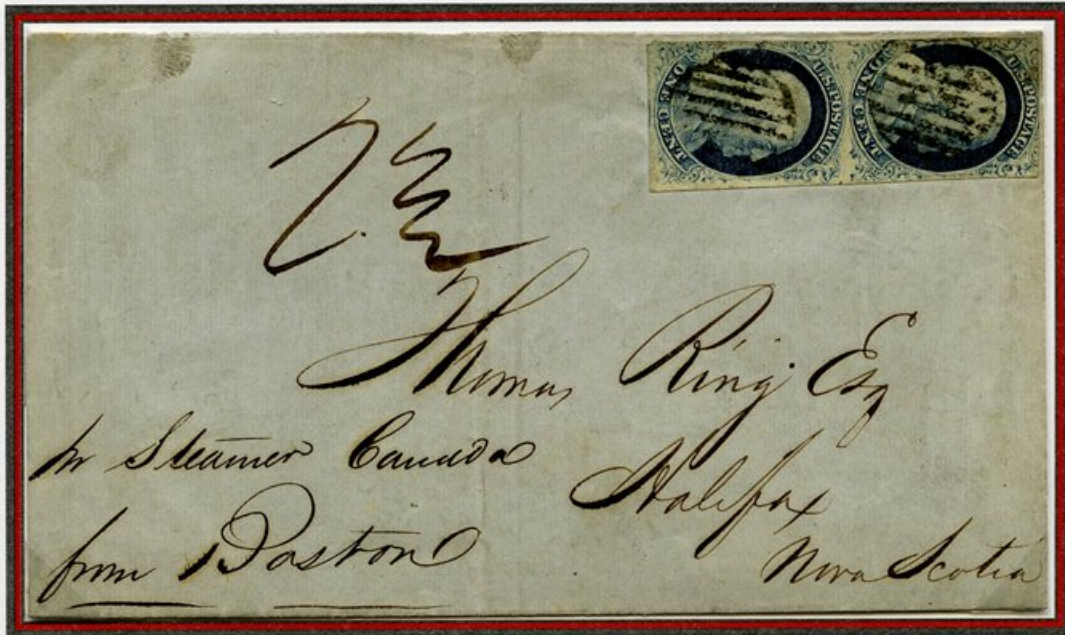 U.S. POSTAGE
ONE CENT
U.S. POSTAGE
ONE CENT
Thomas Ring Esq
pr Steamer Canada
Halifax
from Boston
Nova Scotia